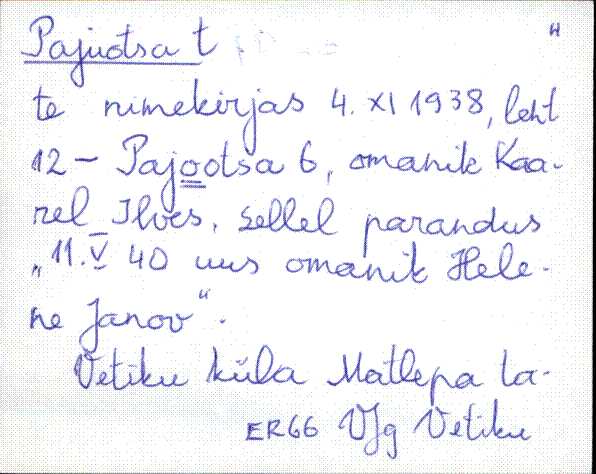 Pajuotsa t
"
te nimekirjas 4. XI 1938, leht
12 – Pajootsa 6, omanik Kaa-
rel Ilves. Sellel parandus
„11. V 40 uus omanik Hele-
ne Janov“.
Vetiku küla Matlepa ta-
ER66 VJg Vetiku